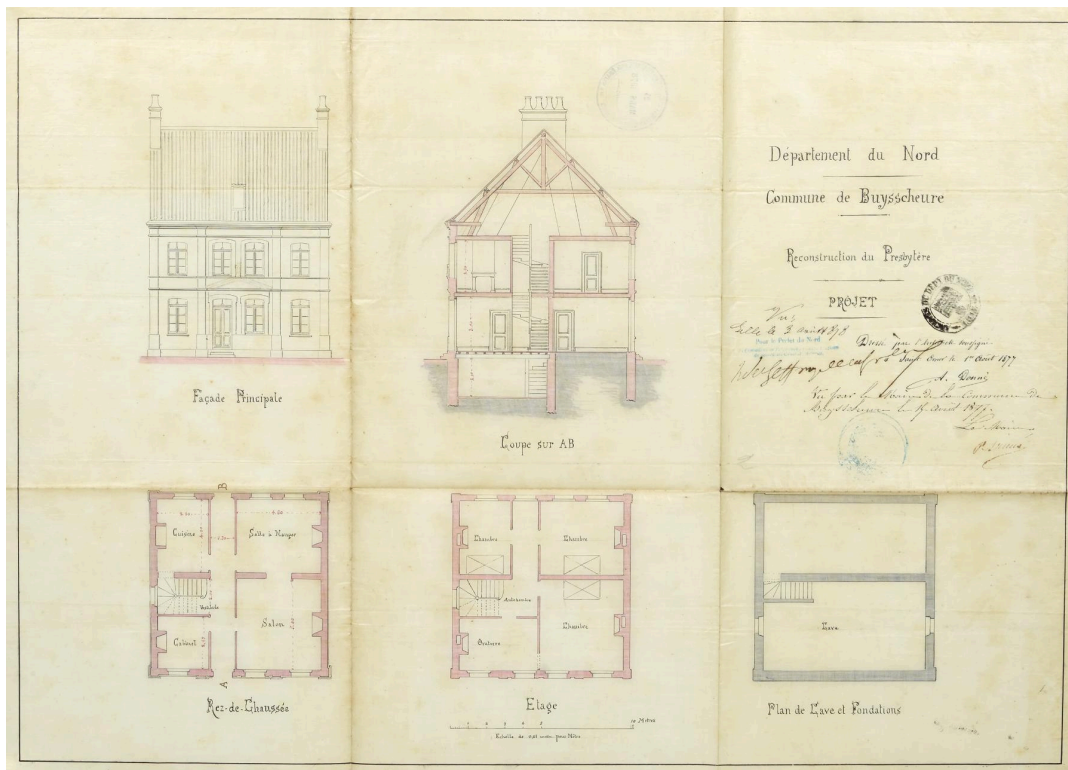 Département du Nord
Commune de Buysscheure
Reconstruction du Presbytère
PROJET
Vu,
Lille le 3 août 1878
Pour le Préfet du Nord
Dressé par l'Architecte soussigné
Saint Omer le 1er Août 1877
A. Donné
Vu par le Maire de la Commune de
Buysscheure le 4 Août 1877.
Le Maire
Façade Principale
Coupe sur AB
B
Cuisine
Salle à Manger
Vestibule
Cabinet
Salon
A
Rez-de-Chaussée
Chambre
Chambre
Antichambre
Oratoire
Chambre
Etage
10 Mètres
Echelle de 0,01 centm. pour Mètre
Cave
Plan de Cave et Fondations